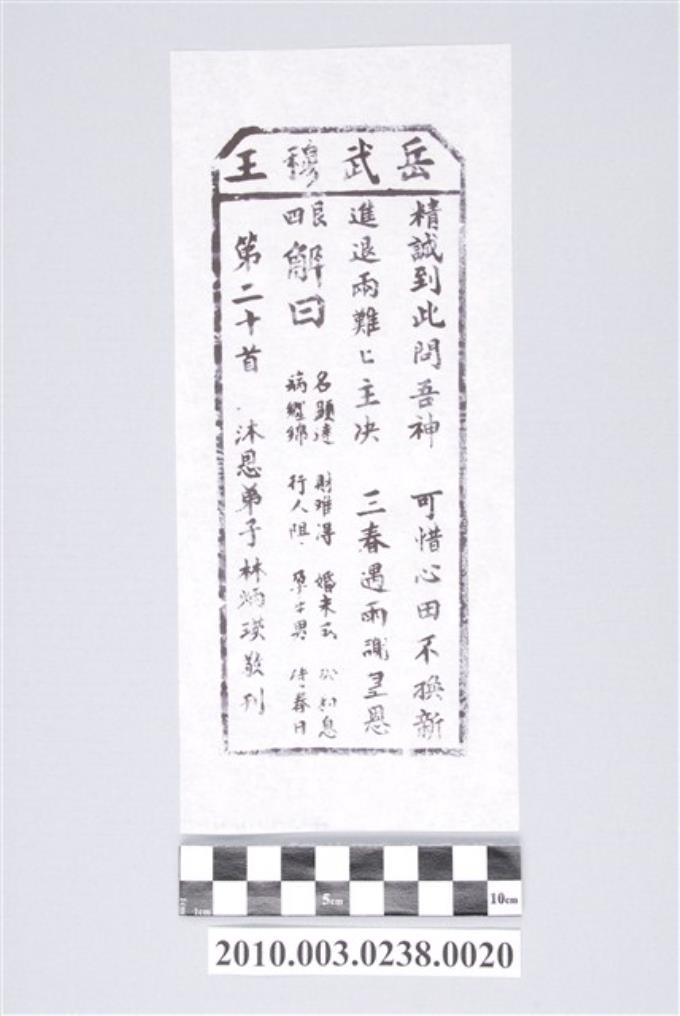 岳武穆王
精誠到此問吾神 可惜心田不換新
進退兩難亡主决 三春遇雨謝皇恩
艮四 解曰
名顯達 財难得 婚未 和息
病纏綿 行人阻 孕生男 待春日
第二十首 沐恩弟子林炳瑛敬刊
5cm
10cm
2010.003.0238.0020